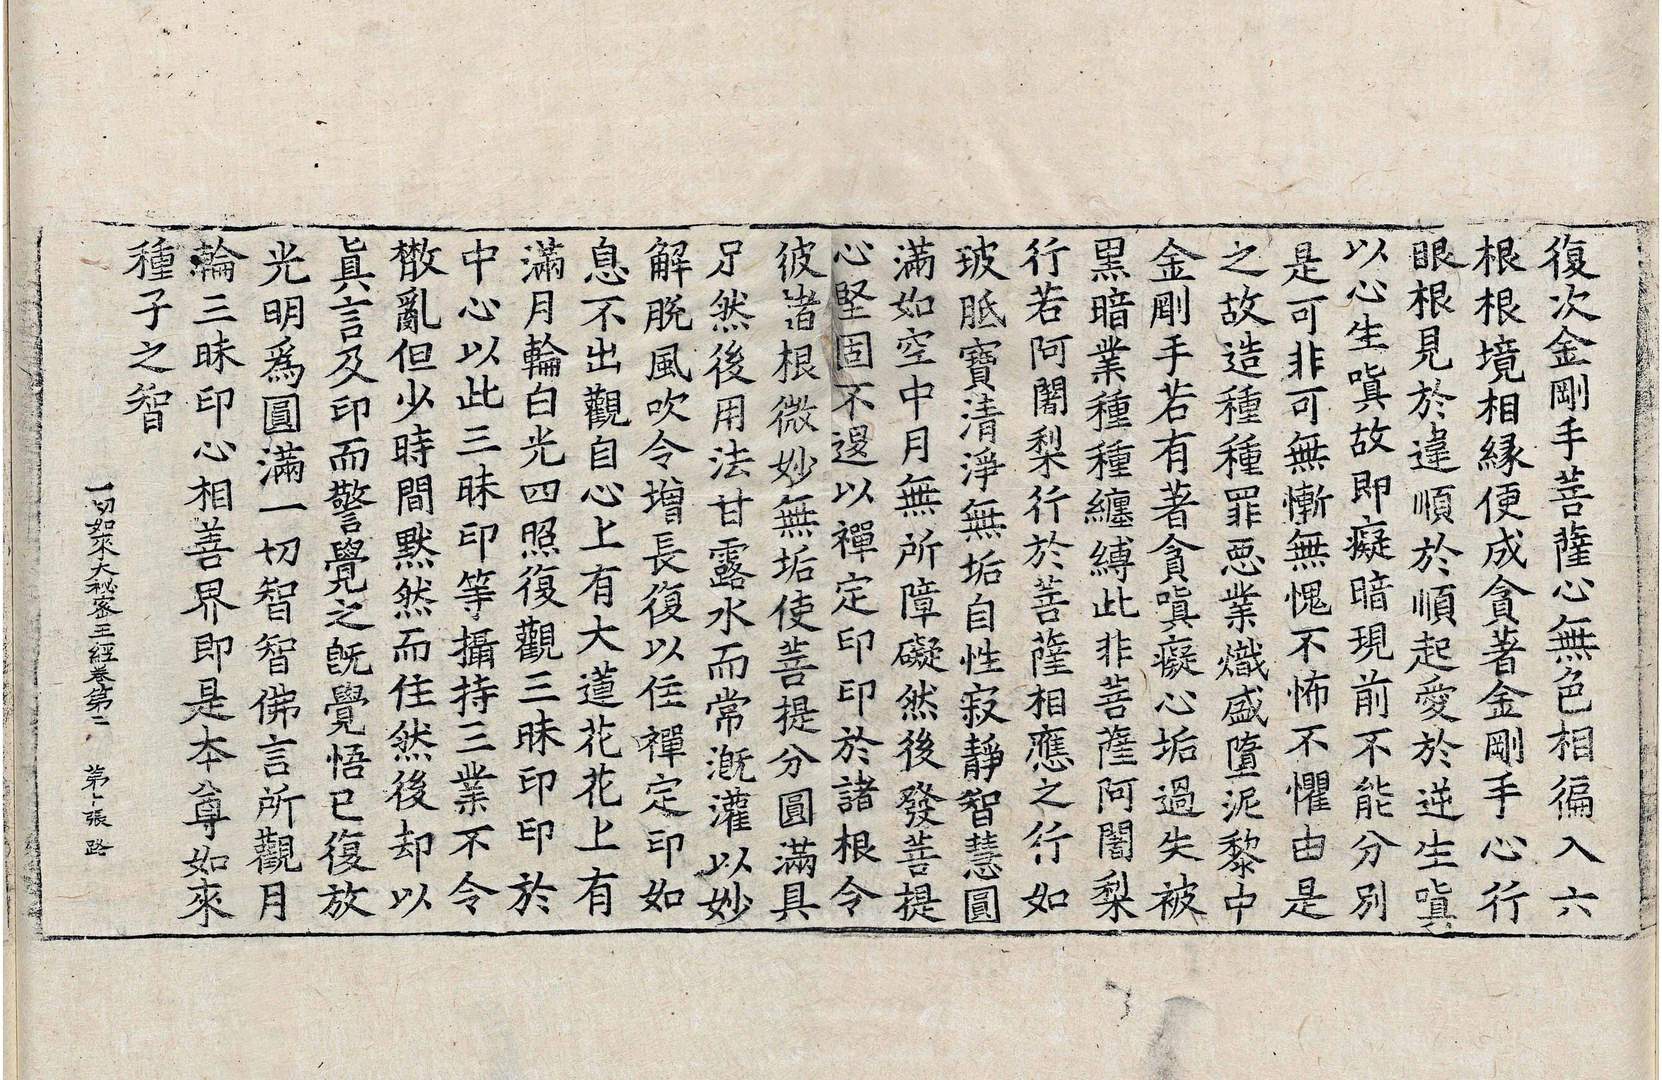 復次金剛手菩薩心無色相徧入六
根根境相緣便成貪著金剛手心行
眼根見於違順於順起愛於逆生嗔
以心生嗔故即癡暗現前不能分別
是可非可無慚無愧不怖不懼由是
之故造種種罪惡業熾盛墮泥黎中
金剛手若有著貪嗔癡心垢過失被
黑暗業種種纏縛此非菩薩阿闍梨
行若阿闍梨行於菩薩相應之行如
玻胝寶清淨無垢自性寂靜智慧圓
滿如空中月無所障礙然後發菩提
心堅固不退以禪定印印於諸根令
彼諸根微妙無垢使菩提分圓滿具
足然後用法甘露水而常溉灌以妙
解脫風吹令增長復以住禪定印如
息不出觀自心上有大蓮花花上有
滿月輪白光四照復觀三昧印印於
中心以此三昧印等攝持三業不令
散亂但少時間默然而住然後却以
眞言及印而警覺之旣覺悟已復放
光明爲圓滿一切智智佛言所觀月
輪三昧印心相善界即是本尊如來
種子之智
一切如來大秘密王經卷第二　第十張　路